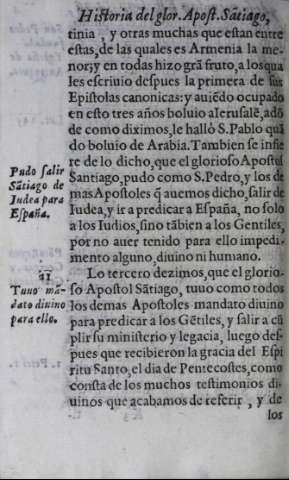 Historia del glor. Apost. Sãtiago,
tinia, y otras muchas que estan entre
estas, de las quales es Armenia la me-
nor; y en todas hizo grã fruto, a los qua
les escriuio despues la primera de sus
Epistolas canonicas: y auiẽdo ocupado
en esto tres años boluio a Ierusalẽ, adõ
de como diximos, le hallò S. Pablo quã
do boluio de Arabia. Tambien se infie
re de lo dicho, que el glorioso Apostol
Santiago, pudo como S. Pedro, y los de
mas Apostoles q̃ auemos dicho, salir de
Iudea, y ir a predicar a España, no solo
a los Iudios, sino tãbien a los Gentiles,
por no auer tenido para ello impedi-
mento alguno, diuino ni humano.
Pudo salir
Sãtiago de
Iudea para
España.
Lo tercero dezimos, que el glorio-
so Apostol Sãtiago, tuuo como todos
los demas Apostoles mandato diuino
para predicar a los Gẽtiles, y salir a cũ
plir su ministerio y legacia, luego des-
pues que recibieron la gracia del Espi
ritu Santo, el dia de Pentecostes, como
consta de los muchos testimonios di-
uinos que acabamos de referir, y de
los
11
Tuuo mã-
dato diuino
para ello.